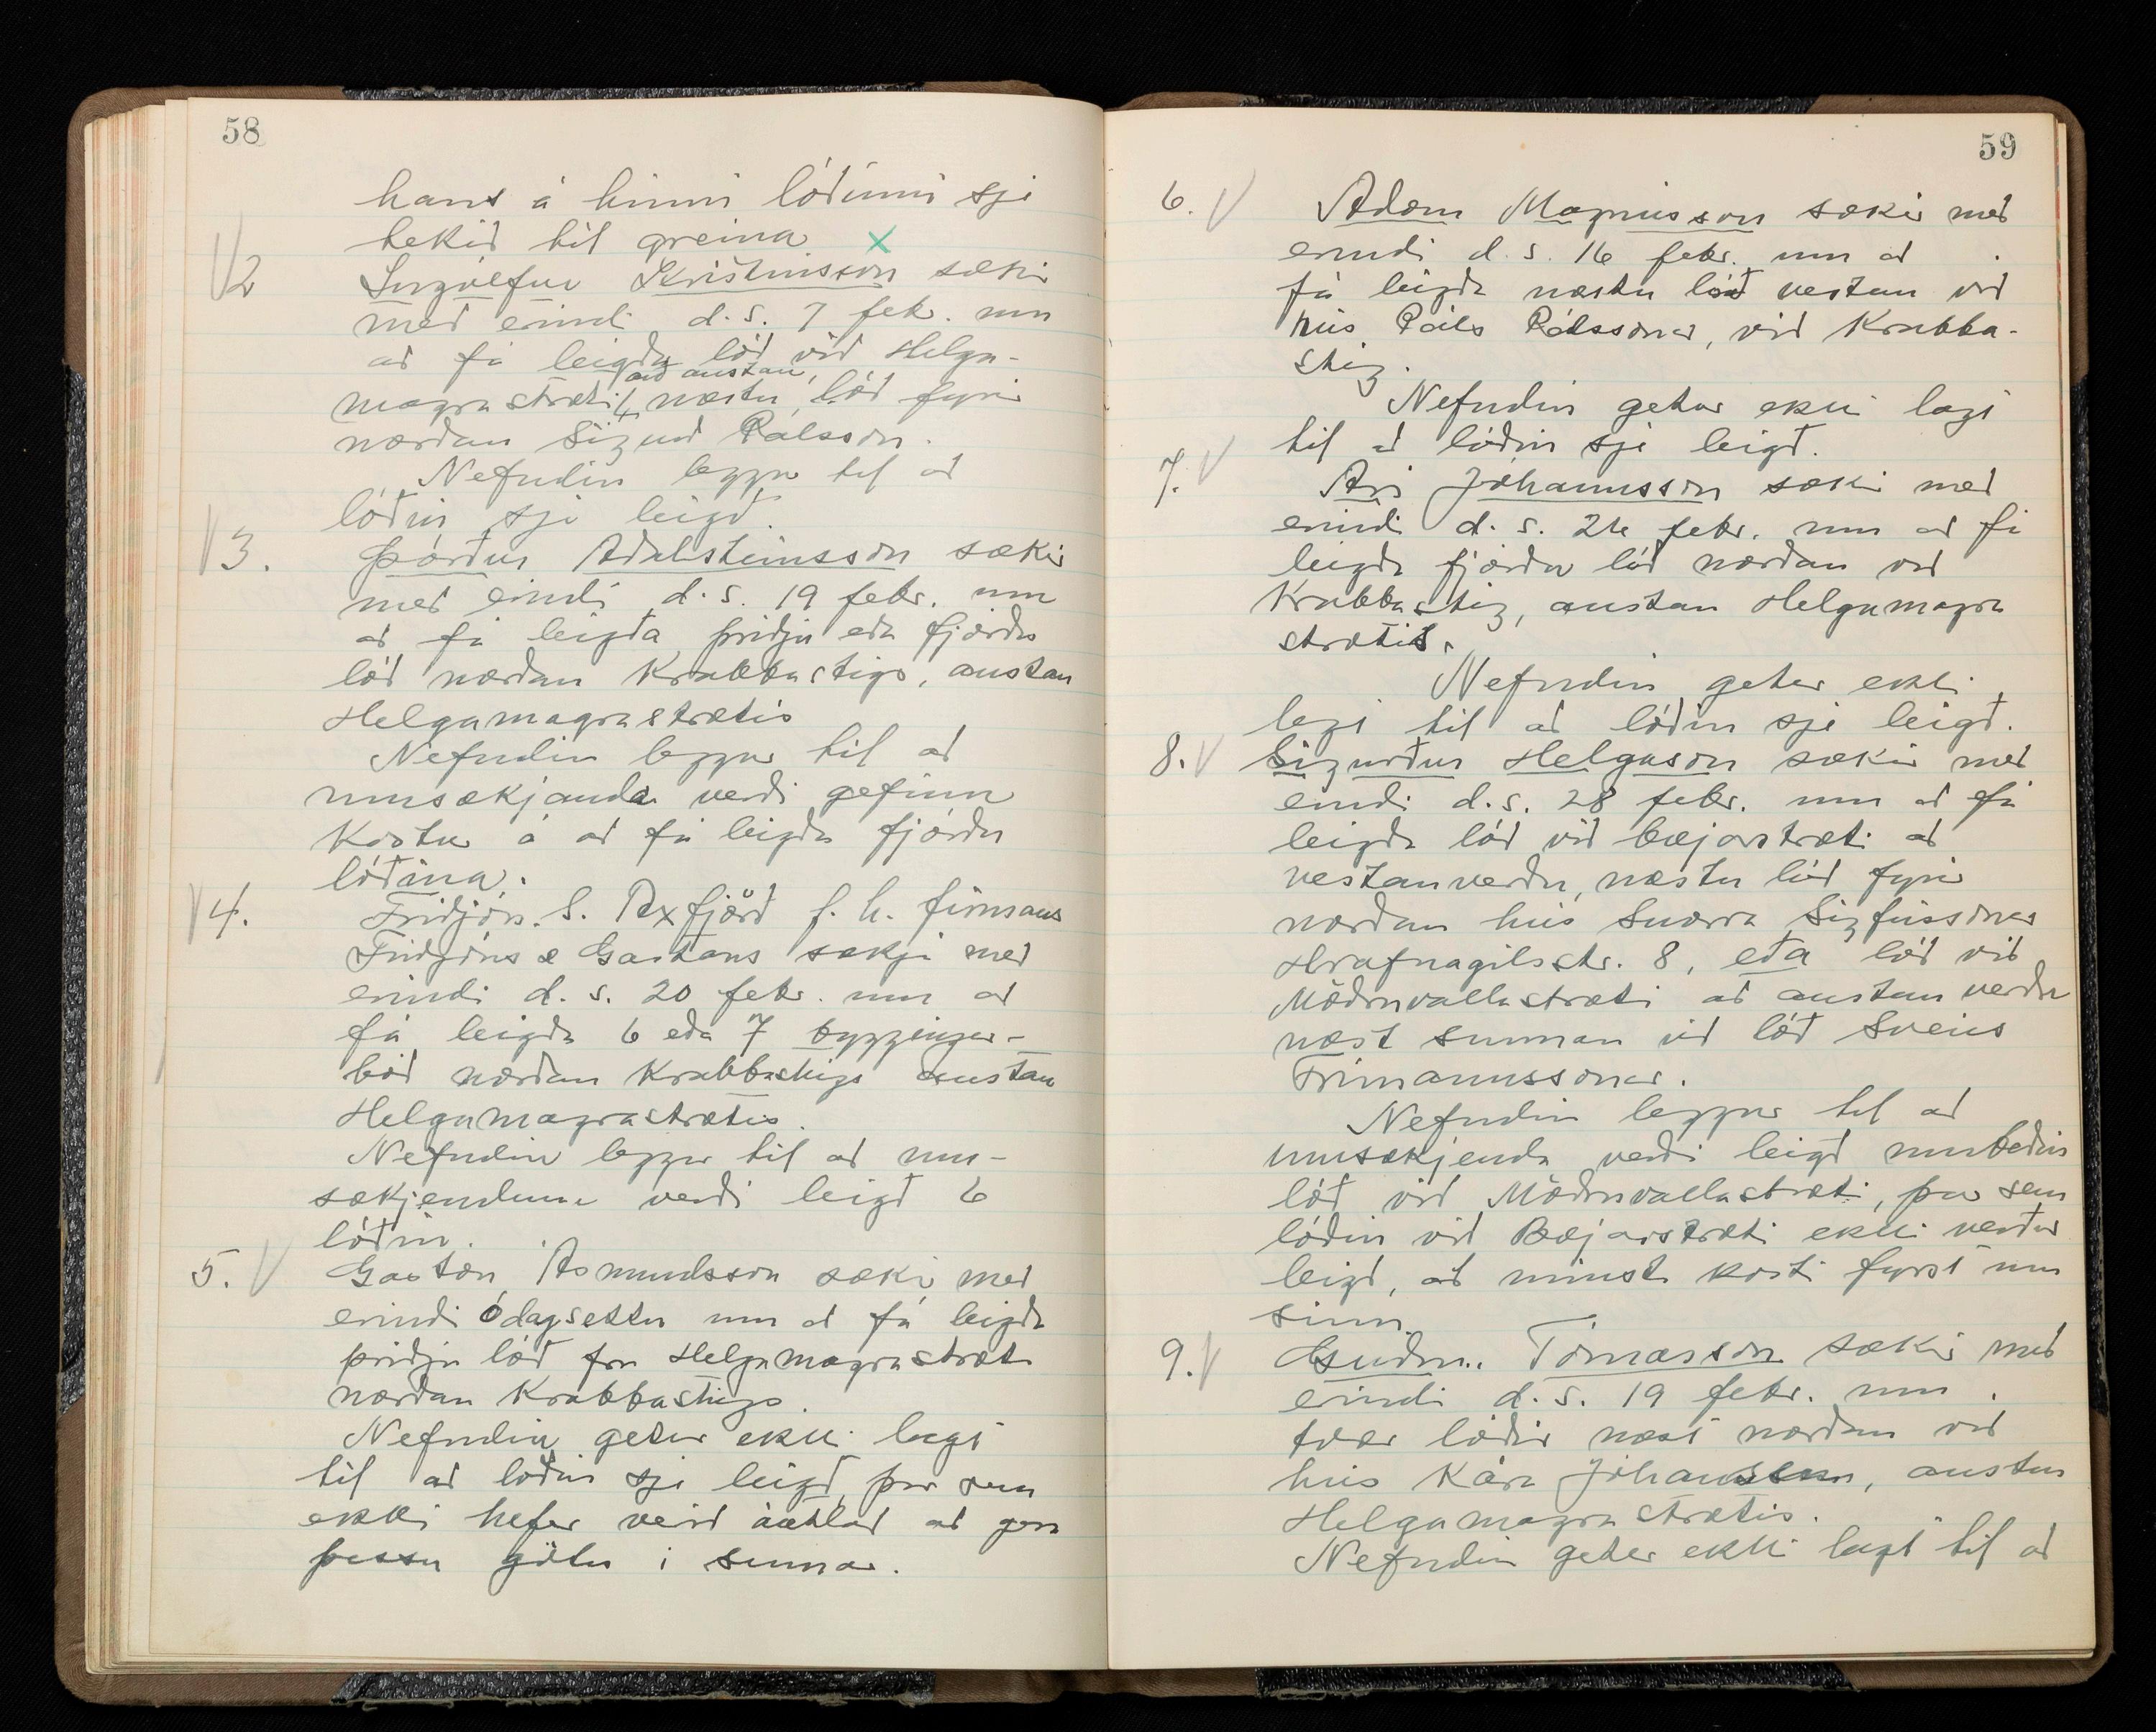 58
hans á hinni lóðinni sje
tekið til greina x
2 Ingólfur Kristinsson sækir
með erindi d.s. 7 febr. um
að fá leigða lóð við Helga-
magrastræti, að austan, næstu lóð fyrir
norðan Sigurð Pálsson.
Nefndin leggur til að
lóðin sje leigð.
3. Þórður Aðalsteinsson sækir
með erindi d.s. 19 febr. um
að fá leigða þriðju eða fjórðu
lóð norðan Krabbastígs, austan
Helgamagrastrætis
Nefndin leggur til að
umsækjanda verði gefinn
kostur á að fá leigða fjórðu
lóðina.
4. Friðjón S. Axfjörð f.h. firmans
Friðjóns & Gastons sækji með
erindi d.s. 20 febr. um að
fá leigða 6 eða 7 byggingar-
lóð norðan Krabbastígs austan
Helgamagrastrætis.
Nefndin leggur til að um-
sækjendum verði leigð 6
lóðin.
5. Gaston Ásmundsson sækir með
erindi ódagsettu um að fá leigða
þriðju lóð frá Helgamagrastræti
norðan Krabbastígs.
Nefndin getur ekki lagt
til að lóðin sje leigð, þar sem
ekki hefer verið áætlað að gera
þessa götu í sumar.
59
6. Adam Magnússon sækir með
erindi d.s. 16 febr. um að
fá leigða næstu lóð vestan við
hús Páls Pálssonar, við Krabba-
stíg.
Nefndin getur ekki lagt
til að lóðin sje leigð.
7. Ari Jóhannsson sækir með
erindi d.s. 26 febr. um að fá
leigða fjórðu lóð norðan við
Krabbastíg, austan Helgamagra
strætis.
Nefndin geter ekki
lagt til að lóðin sje leigð.
8. Sigurður Helgason sækir með
erindi d.s. 28 febr. um að fá
leigða lóð við bæjarstræti að
vestanverðu, næstu lóð fyrir
norðan hús Snorra Sigfússonar
Hrafnagilsstr. 8, eða lóð við
Möðruvallastræti að austan verðu
næst sunnan við lóð Sveins
Frímannssonar.
Nefndin leggur til að
umsækjenda verði leigð umbeðin
lóð við Möðruvallastræti, þar sem
lóðin við Bæjarstræti ekki verður
leigð, að minsta kosti fyrst um
sinn.
9. Guðm. Tómasson sækir með
erindi d.s. 19 febr. um
tvær lóðir næst norðan við
hús Kára Johansen, austan
Helgamagrastrætis.
Nefndin geter ekki lagt til að